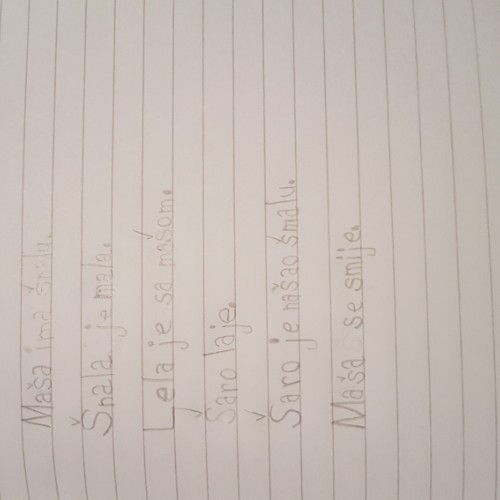 Maša ima šnalu.
Šnala je mala.
Lela je sa mašom.
Šaro laje.
Šaro je našao šmalu.
Maša se smije.